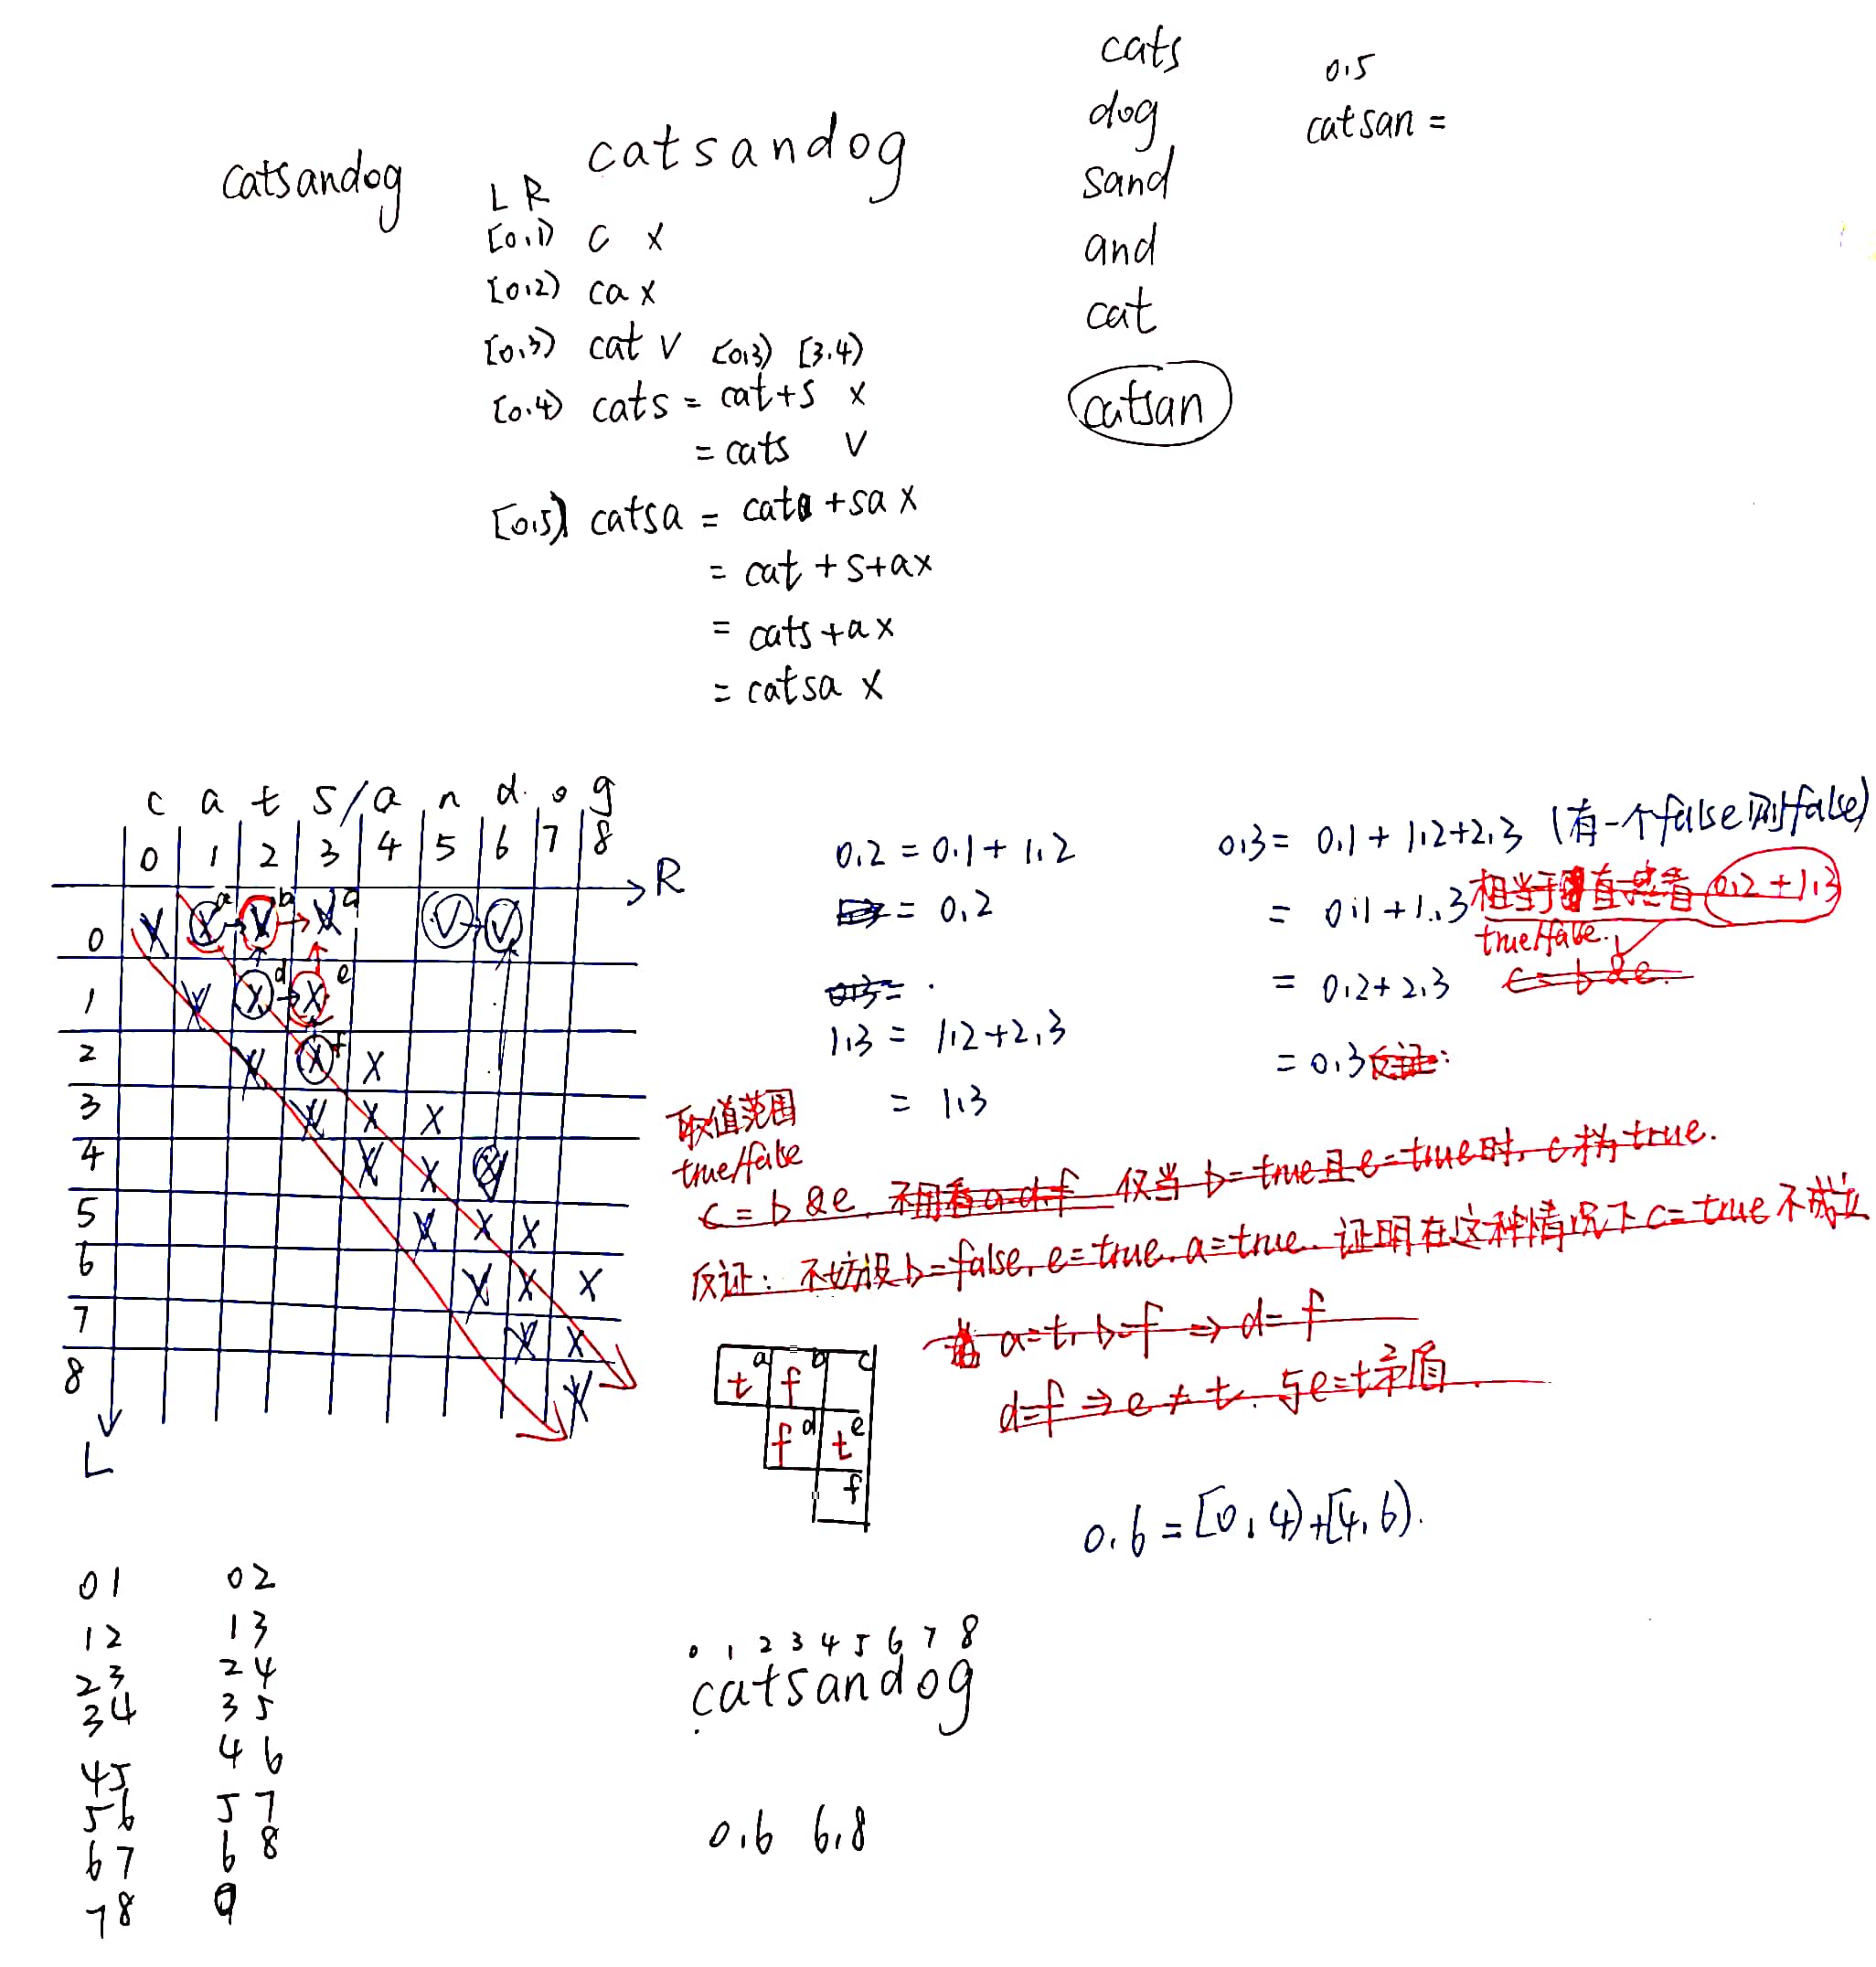 catsandog
catsandog
L R
[0,1) c x
[0,2) ca x
[0,3) cat v [0,3) [3,4)
[0,4) cats = cat+s x
= cats v
[0,5) catsa = cat +sa x
= cat + s+a x
= cats +a x
= catsa x
cats
dog
sand
and
cat
catsan
0,5
catsan =
c a t s / a n d o g
0 1 2 3 4 5 6 7 8
R
0 X X a V b X V V
1 X X d X e
2 X X f X
3 X X X
4 X X
5 X X X
6 X X X
7 X X
8 X
L
0,2 = 0,1 + 1,2
= 0,2
0,3 = .
1,3 = 1,2+2,3
= 1,3
0,3 = 0,1 + 1,2+2,3 (有一个false则false)
= 0,1 + 1,3 相当于 直接看 0,2 + 1,3
true/false.
= 0,2+2,3 c = b & e.
= 0,3 反证:
取值范围
true/false
c = b & e. 不用看a d f 仅当 b=true且e=true时, c才为true.
反证: 不妨设b=false, e=true, a=true. 证明在这种情况下c=true不成立
a=t, b=f ⇒ d=f
d=f ⇒ e ≠ t. 与e=t矛盾
t a f b c
f d t e
f
0,6 = [0,4)+[4,6).
01 02
12 13
23 24
34 35
45 46
56 57
67 68
78
0 1 2 3 4 5 6 7 8
catsandog
0,6 6,8